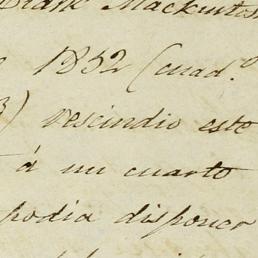 Frank Mackintosh
1852 (cuad.º
3) rescindio este
á un cuarto
podia disponer